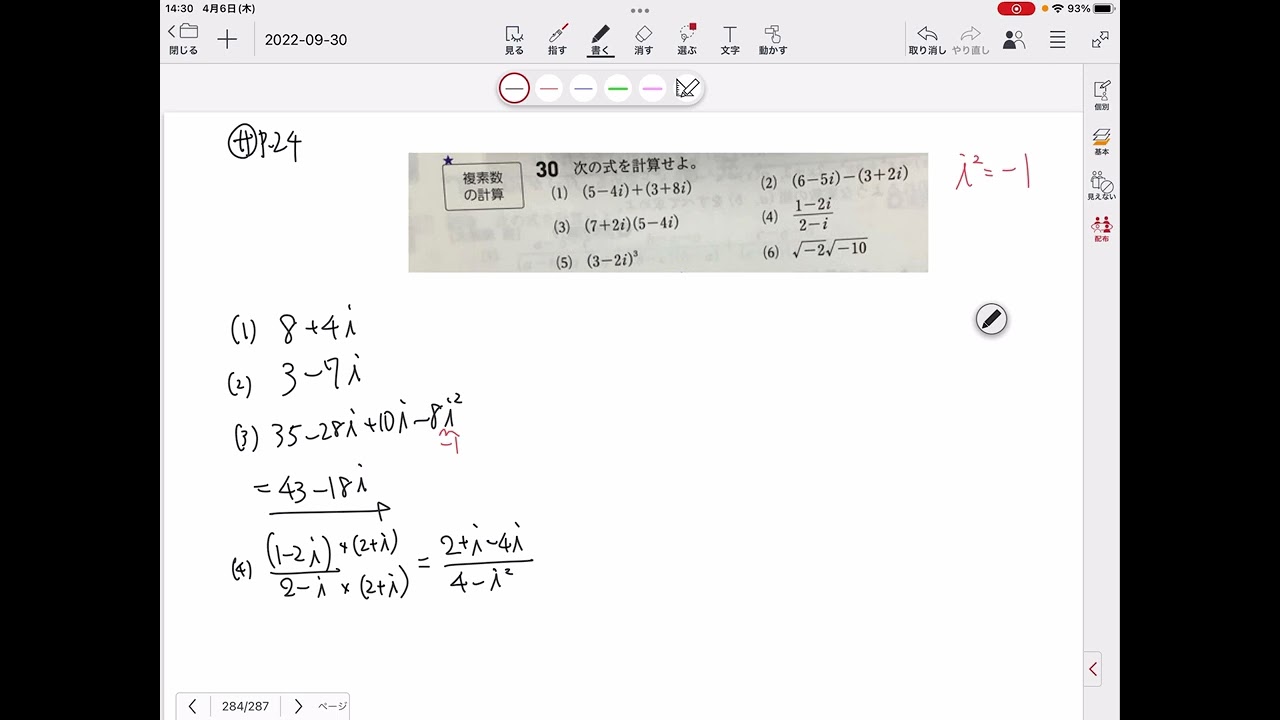 14:30 4月6日(木) 93%
閉じる 2022-09-30 見る 指す 書く 消す 選ぶ 文字 動かす 取り消し やり直し
個別
基本
見えない
配布
サ P.24
複素数の計算
30 次の式を計算せよ。
(1) (5−4i)+(3+8i) (2) (6−5i)−(3+2i)
(3) (7+2i)(5−4i) (4) \frac{1−2i}{2−i}
(5) (3−2i)³ (6) √−2√−10
i²=−1
(1) 8+4i
(2) 3−7i
(3) 35−28i+10i−8i²
−1
=43−18i
(4) \frac{(1−2i)×(2+i)}{2−i×(2+i)} = \frac{2+i−4i}{4−i²}
284/287 ページ